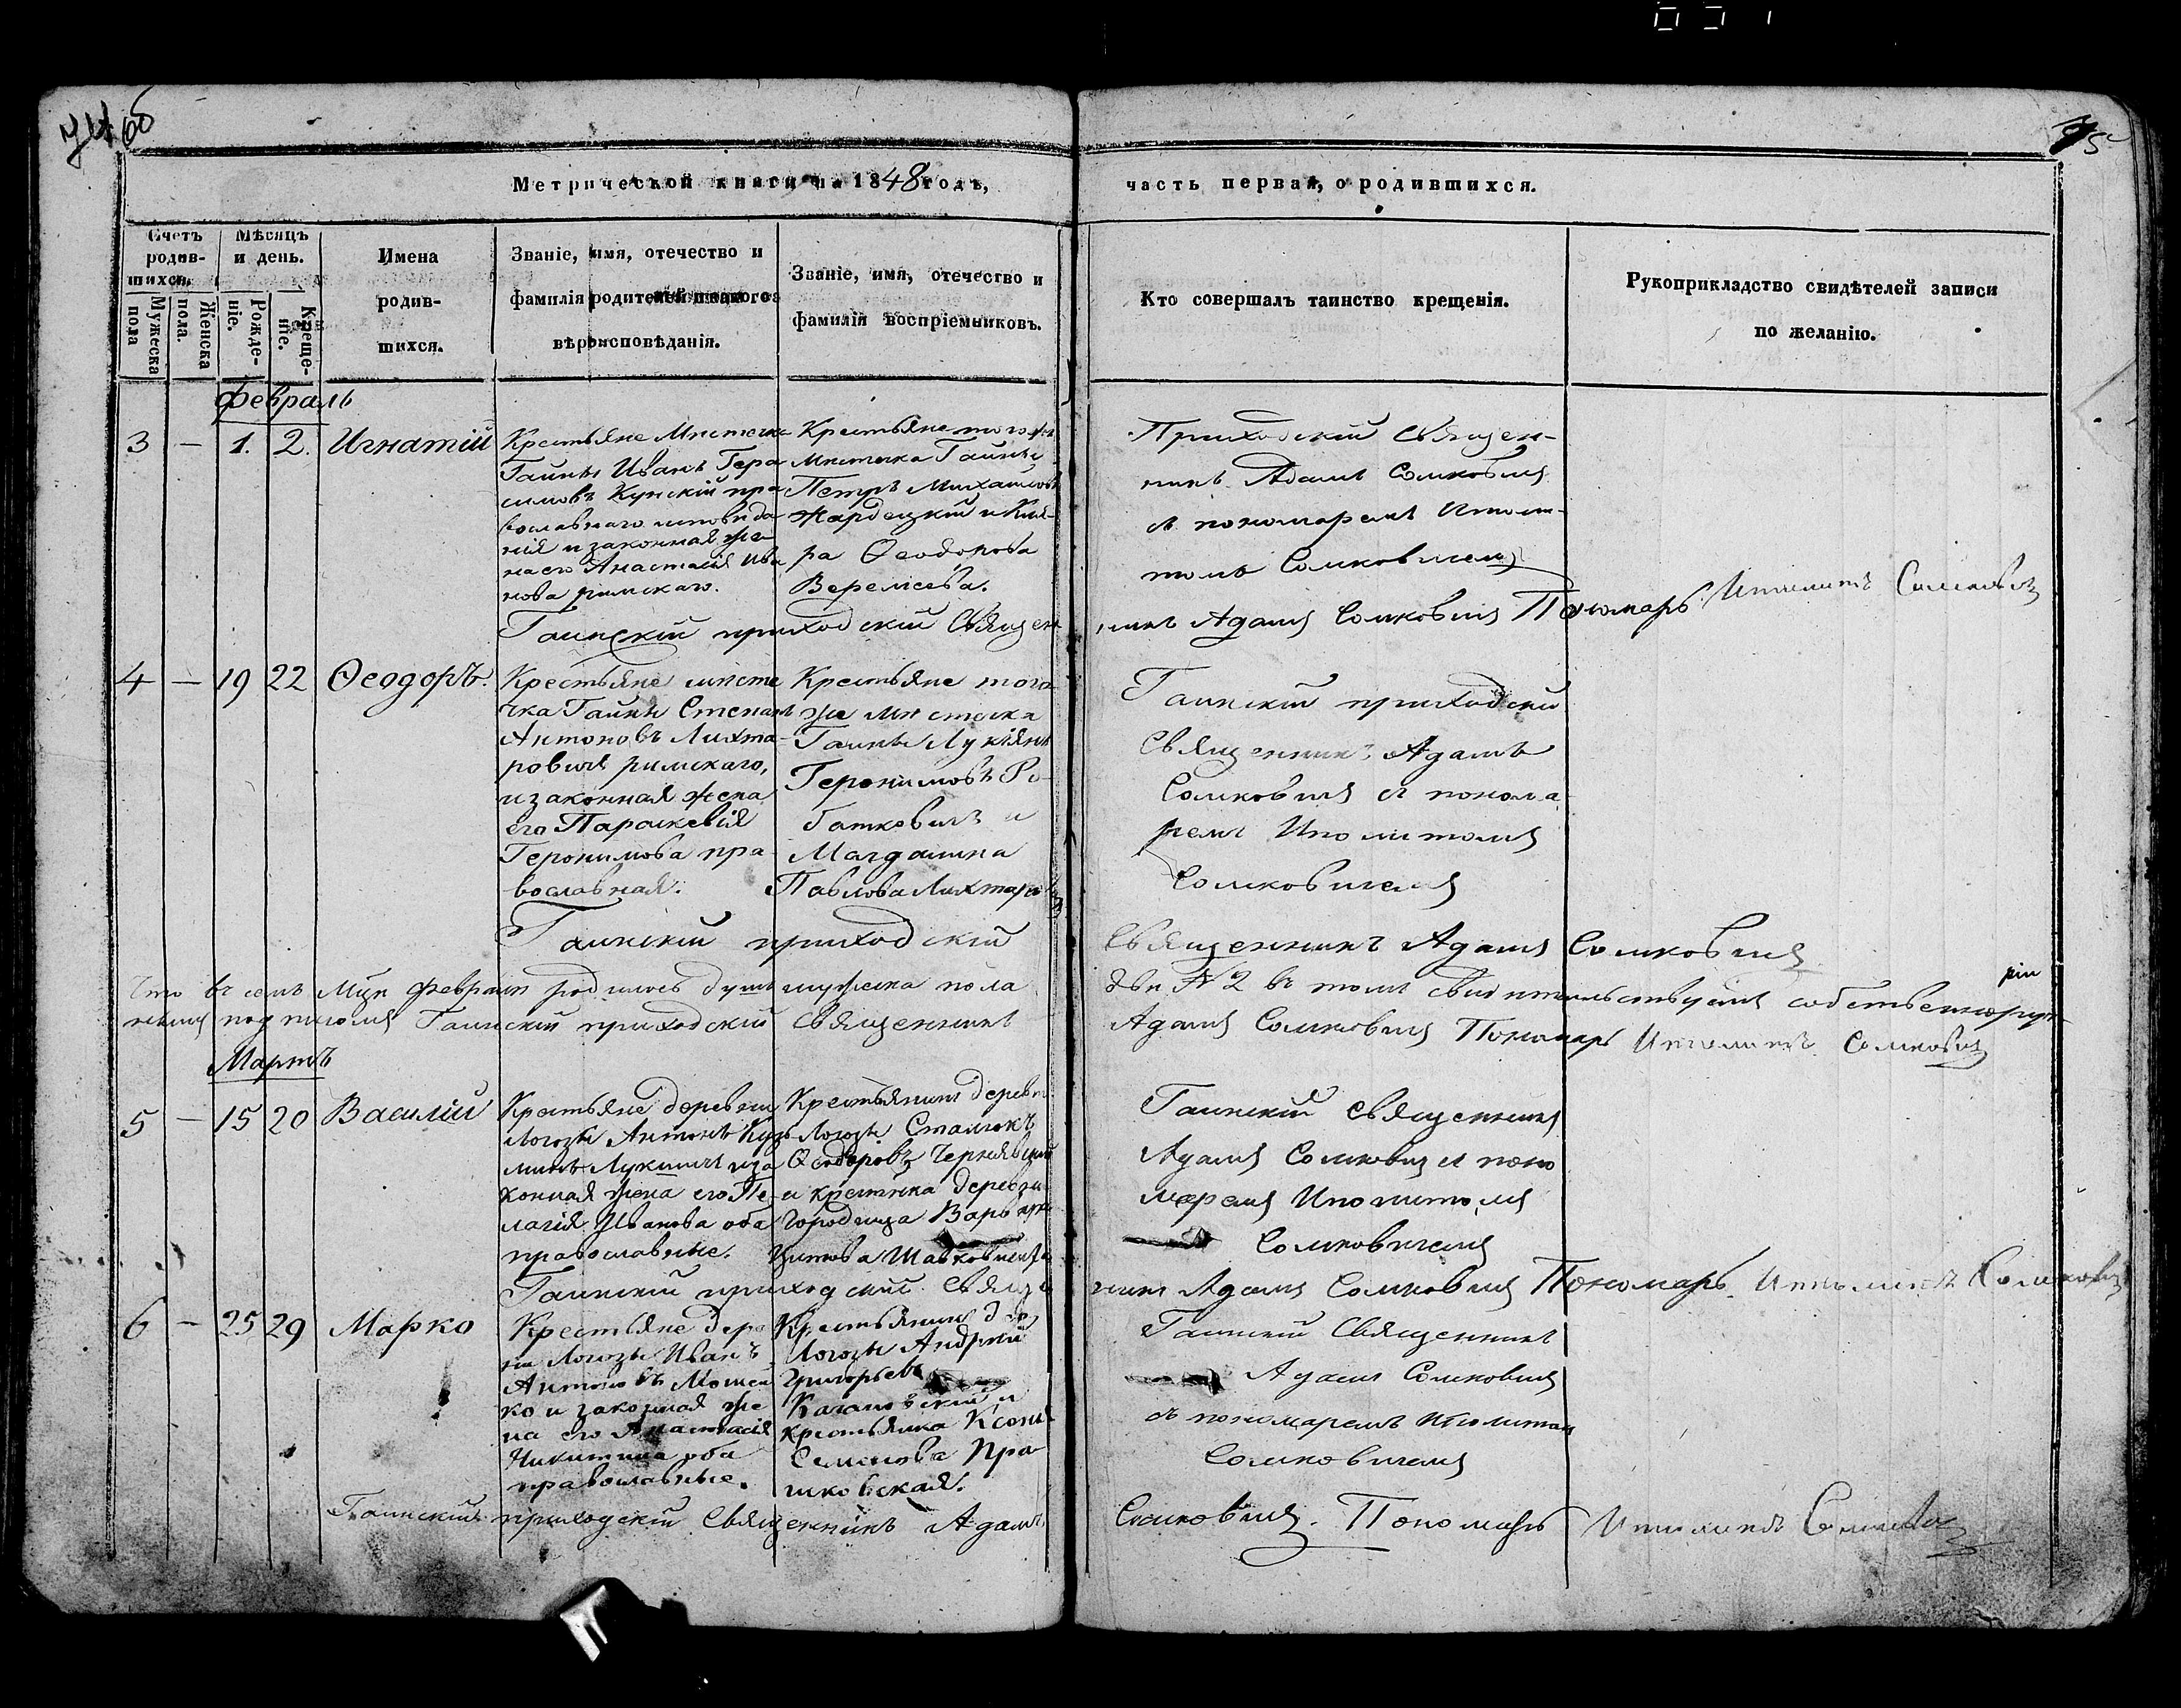 Метрической книги на 1848 годъ,
часть первая, о родившихся.
Счетъ родив-шихся.
Мужеска пола
Женска пола.
Мѣсяцъ и день.
Рожде-ніе.
Креще-ніе.
Имена
родив-
шихся.
Званіе, имя, отечество и
фамилія родителей и какого
вѣроисповѣданія.
Званіе, имя, отечество и
фамилія воспріемниковъ.
Кто совершалъ таинство крещенія.
Рукоприкладство свидѣтелей записи
по желанію.
Февраль
3 — 1. 2. Игнатій
Крестьяне Мистечка
Гайны Иванъ Гера
симовъ Кунскій пра
вославнаго исповѣда
нія и законная же
на его Анастасія Ива
нова римскаго.
Крестьяне того же
Мистечка Гайны
Петръ Михайловъ
Жардецкій и Кил-
ра Ѳеодорова
Веремѣева.
Приходскій Священ-
никъ Адамъ Сомковичъ
съ пономаремъ Иполи-
томъ Сомковичемъ
Гаинскій приходскій Священ
никъ Адамъ Сомковичъ Пономарь Иполитъ Сомковичъ
4 — 19 22 Ѳеодоръ.
Крестьяне мисте
чка Гайны Степанъ
Антоновъ Лихта-
ровичъ римскаго,
и законная жена
его Параскевія
Геронимова пра-
вославная.
Крестьяне того
же Мистечка
Гаины Лукіянъ
Геронимовъ Ро-
батковичъ и
Магдалина
Павлова Лихтаро
Гаинскій приходскій
Священникъ Адамъ
Сомковичъ съ понома
ремъ Иполитомъ
Сомковичемъ
Гаинскій приходскій
Священникъ Адамъ Сомковичъ
Что въ семъ Мцѣ Февралѣ родилось душъ мужеска пола
двѣ № 2 въ томъ свидѣтельствуемъ собственнору
ніемъ подписомъ Гаинскій приходскій Священникъ
Адамъ Сомковичъ Пономарь Иполитъ Сомковичъ
Мартъ
5 — 15 20 Василій
Крестьяне деревни
Логозы Антонъ Кузь
минъ Лукшичъ и за
конная жена его Пе-
лагія Иванова оба
православные.
Крестьянинъ деревн
Логозы Стамокъ
Ѳеодоровъ Чернявскій
и крестянка деревни
Городища Варвара
Титова Шавковиск
Гаинскій Священникъ
Адамъ Сомковичъ съ поно
маремъ Иполитомъ
Сомковичемъ
Гаинскій приходскій Свяще
никъ Адамъ Сомковичъ Пономарь Иполитъ Сомковичъ
6 — 25 29 Марко
Крестьяне дере
ни Логозы Иванъ
Антоновъ Мошей
ко и законная же
на его Анастасія
Никитина оба
православные.
Крестьянинъ дер
Логозы Андрей
Григорьевъ
Кагановскій и
крестьянка Ксенія
Семенова Пра
шковская.
Гаинскій Священникъ
Адамъ Сомковичъ
съ пономаремъ Иполитом
Сомковичемъ
Гаинскій приходскій Священникъ Адамъ
Сомковичъ. Пономарь Иполитъ Сомковичъ